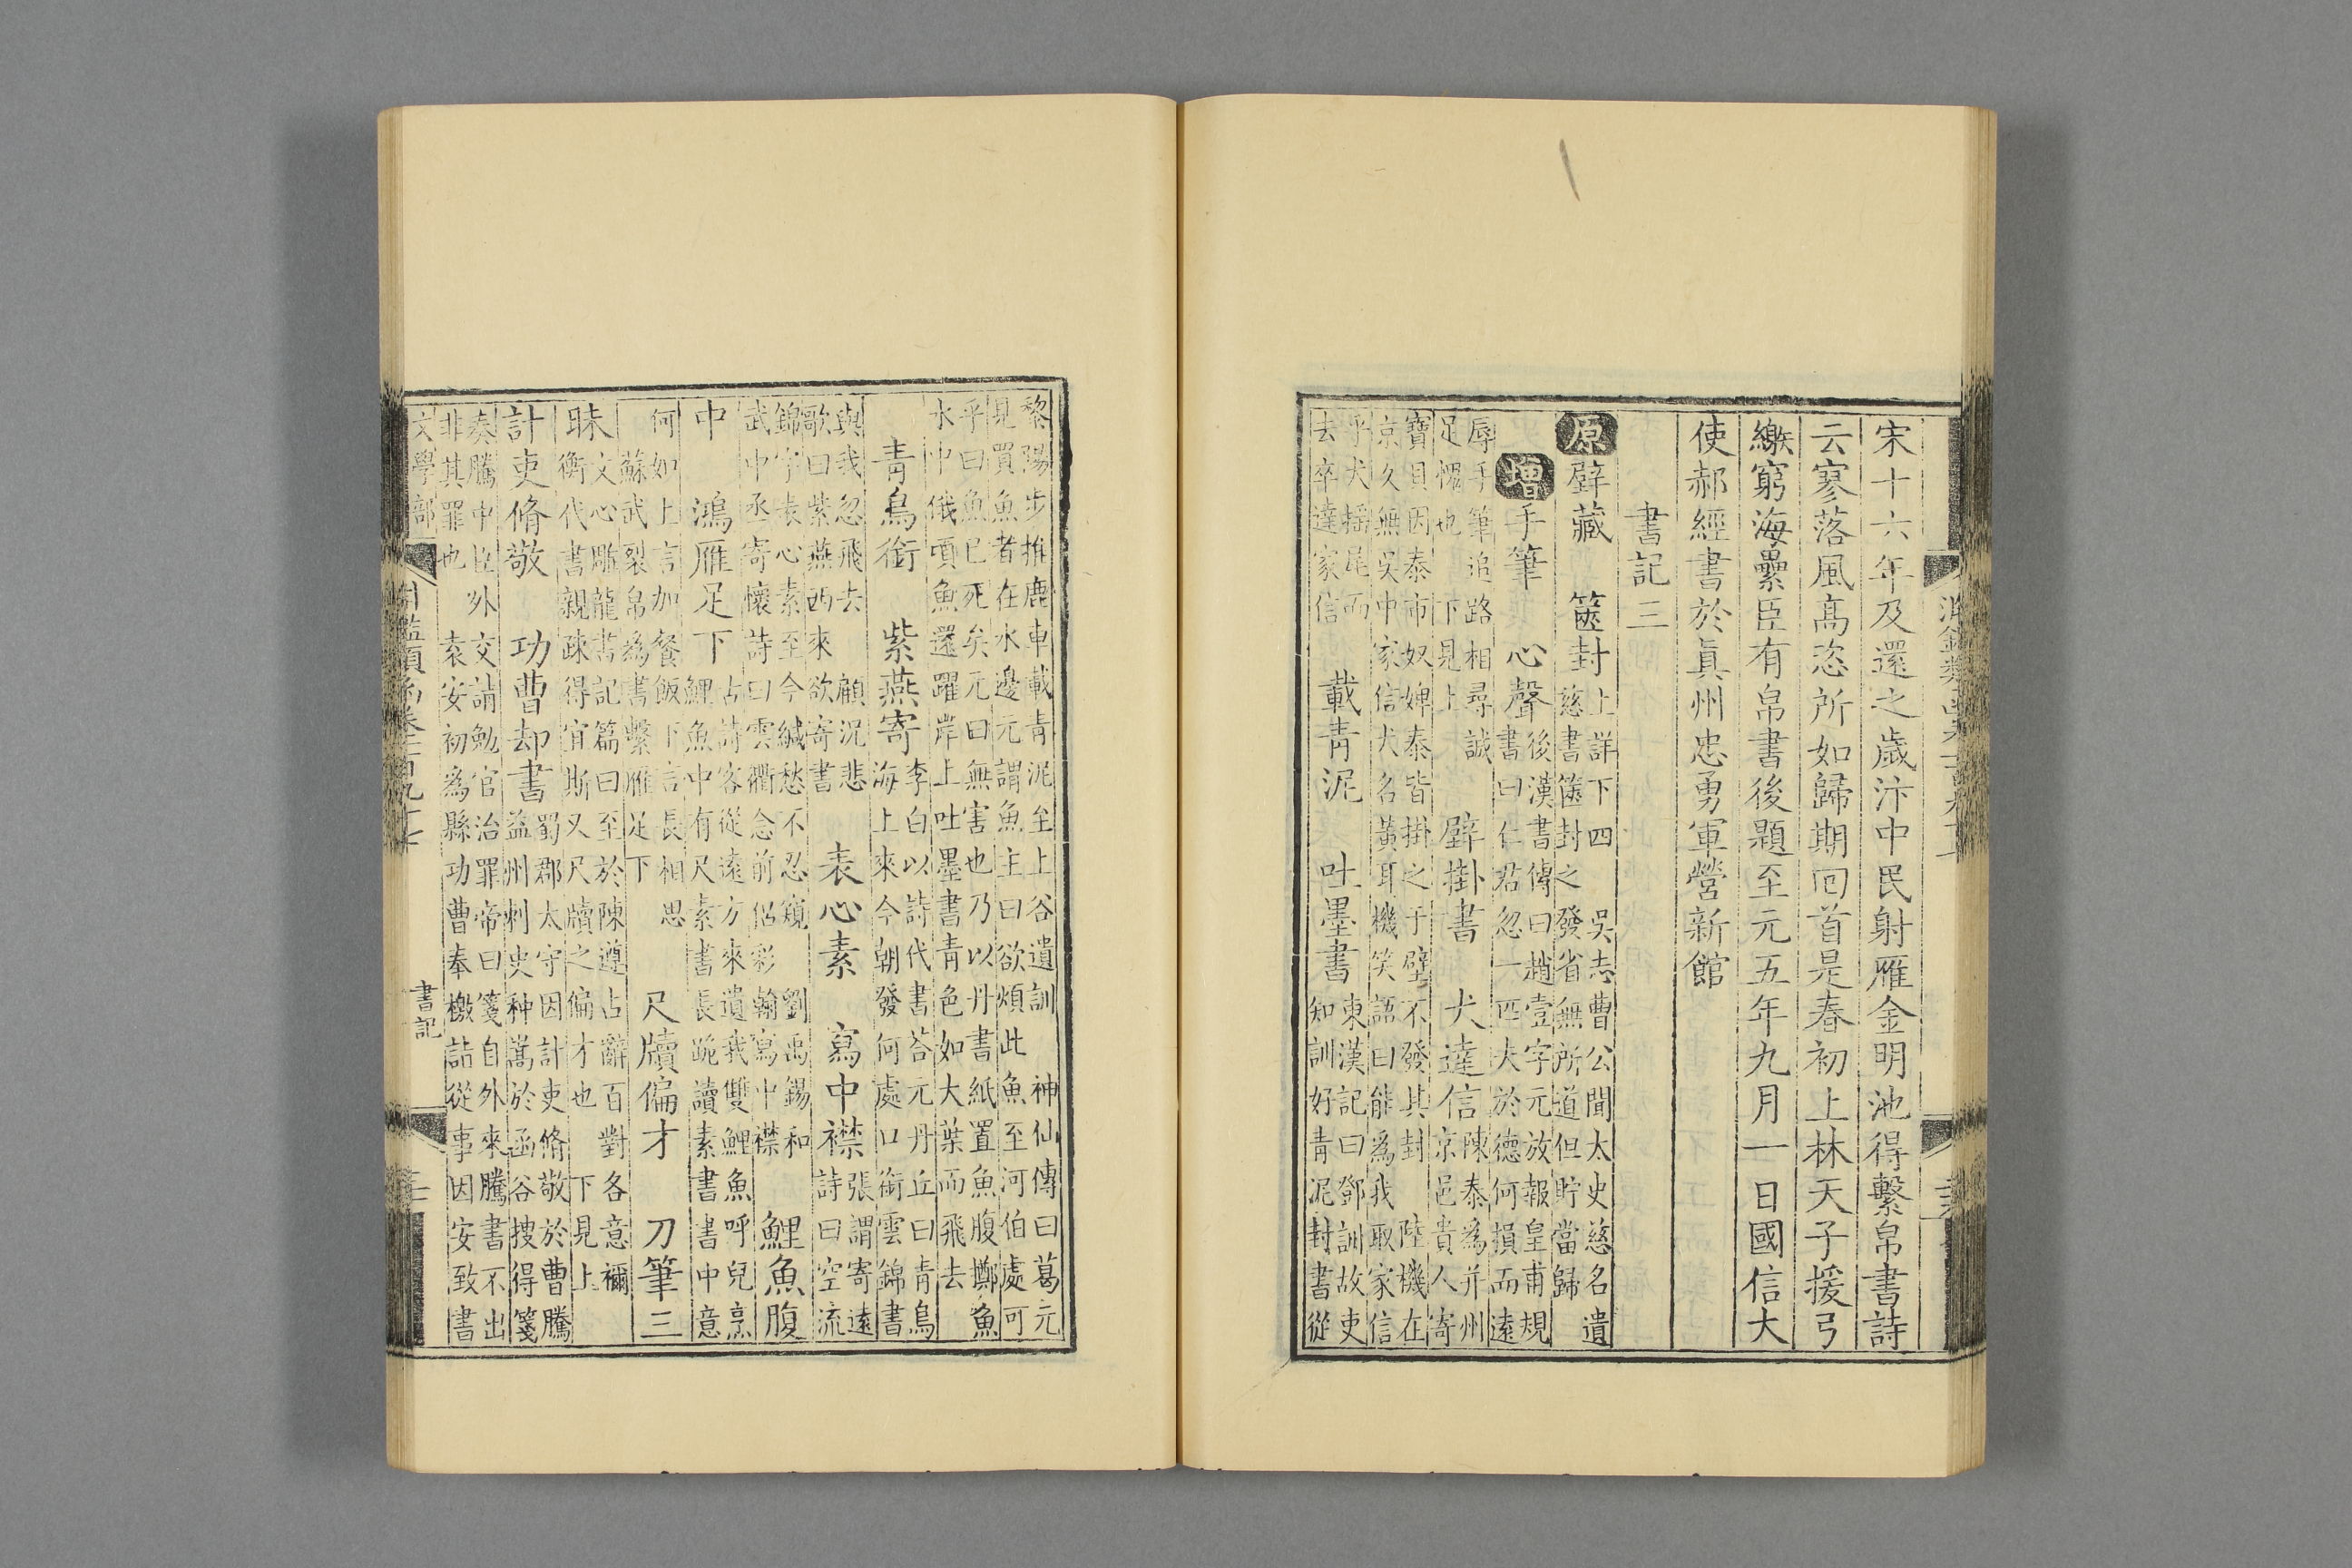 宋十六年及還之歲汴中民射雁金明池得繫帛書詩
云寥落風高恣所如歸期回首是春初上林天子援弓
繳窮海纍臣有帛書後題至元五年九月一日國信大
使郝經書於眞州忠勇軍營新館
書記三
原 璧藏 篋封 上詳下四 吳志曹公聞太史慈名遺
慈書篋封之發省無所道但貯當歸
增 手筆 心聲 後漢書傳曰趙壹字元放報皇甫規
書曰仁君忽一匹夫於德何損而遠
辱手筆追路相尋誠
足愧也 下見上
壁掛書 犬達信 陳泰為并州
京邑貴人寄
寶貝因泰市奴婢泰皆掛之于壁不發其封 陸機在
京久無吳中家信犬名黃耳機笑語曰能為我取家信
乎犬搖尾而
去卒達家信
載青泥 吐墨書 東漢記曰鄧訓故吏
知訓好青泥封書從
黎陽步推鹿車載青泥至上谷遺訓 神仙傳曰葛元
見買魚者在水邊元謂魚主曰欲煩此魚至河伯處可
乎曰魚已死矣元曰無害也乃以丹書紙置魚腹擲魚
水中俄頃魚還躍岸上吐墨書青色如大葉而飛去
青鳥銜 紫燕寄 李白以詩代書荅元丹丘曰青鳥
海上來今朝發何處口銜雲錦書
與我忽飛去 顧況悲
歌曰紫燕西來欲寄書
表心素 寫中襟 張謂寄遠
詩曰空流
錦字表心素至今緘愁不忍窺 劉禹錫和
武中丞寄懷詩曰雲衢念前侶彩翰寫中襟
鯉魚腹
中 鴻雁足下 古詩客從遠方來遺我雙鯉魚呼兒烹
鯉魚中有尺素書長跪讀素書書中意
何如上言加餐飯下言長相思
蘇武裂帛為書繫雁足下
尺牘偏才 刀筆三
昧 文心雕龍書記篇曰至於陳遵占辭百封各意禰
衡代書親疎得宜斯又尺牘之偏才也 下見上
計吏脩敬 功曹却書 蜀郡太守因計吏脩敬於曹騰
益州刺史种暠於函谷搜得箋
奏騰中臣外交請勉官治罪帝曰箋自外來騰書不出
非其罪也 袁安初為縣功曹奉檄詣從事因安致書
文學部
書記